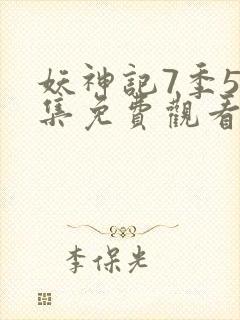 妖神記7季5
集免費觀看
李保光